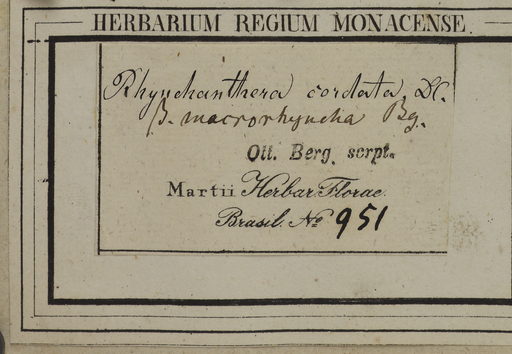 HERBARIUM REGIUM MONACENSE.
Rhynchanthera cordata, DC.
β. macrorhyncha Bg.
Ott. Berg. scrpt.
Martii Herbar. Florae
Brasil. No 951